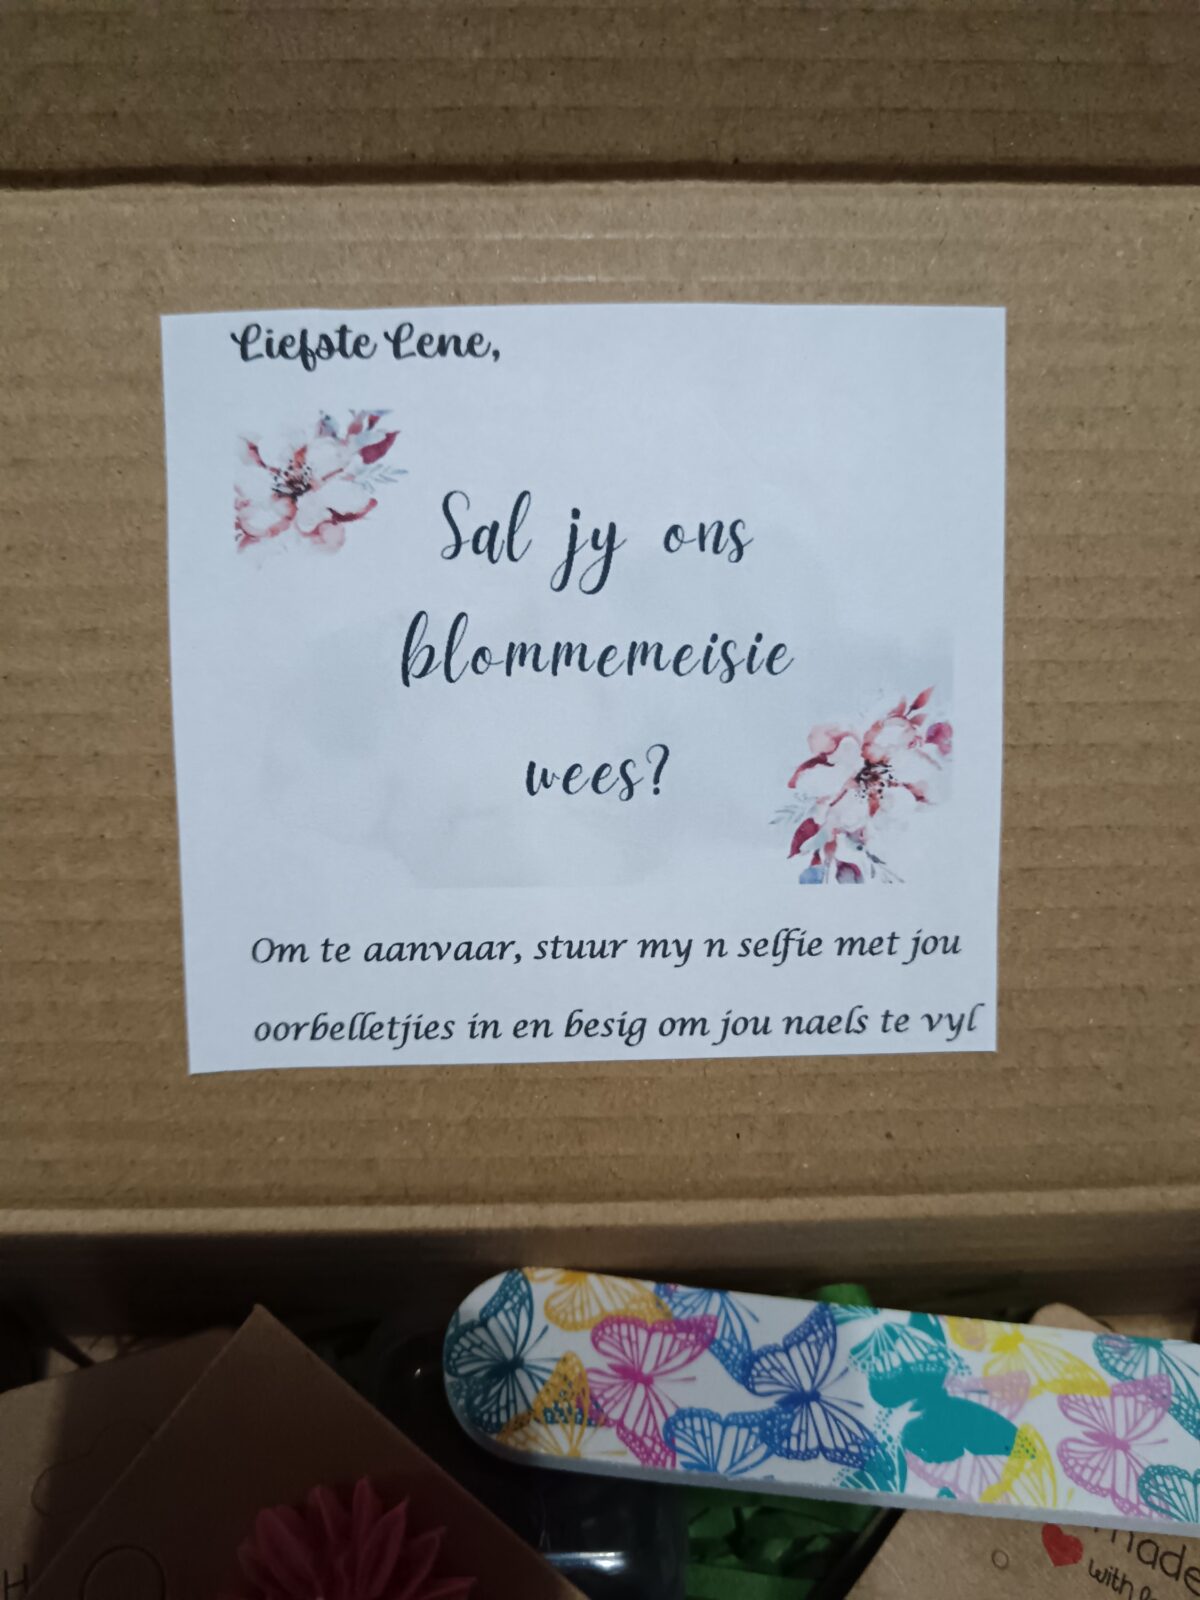 Liefste Lene,
Sal jy ons
blommemeisie
wees?
Om te aanvaar, stuur my n selfie met jou
oorbelletjies in en besig om jou naels te vyl
H
made
with